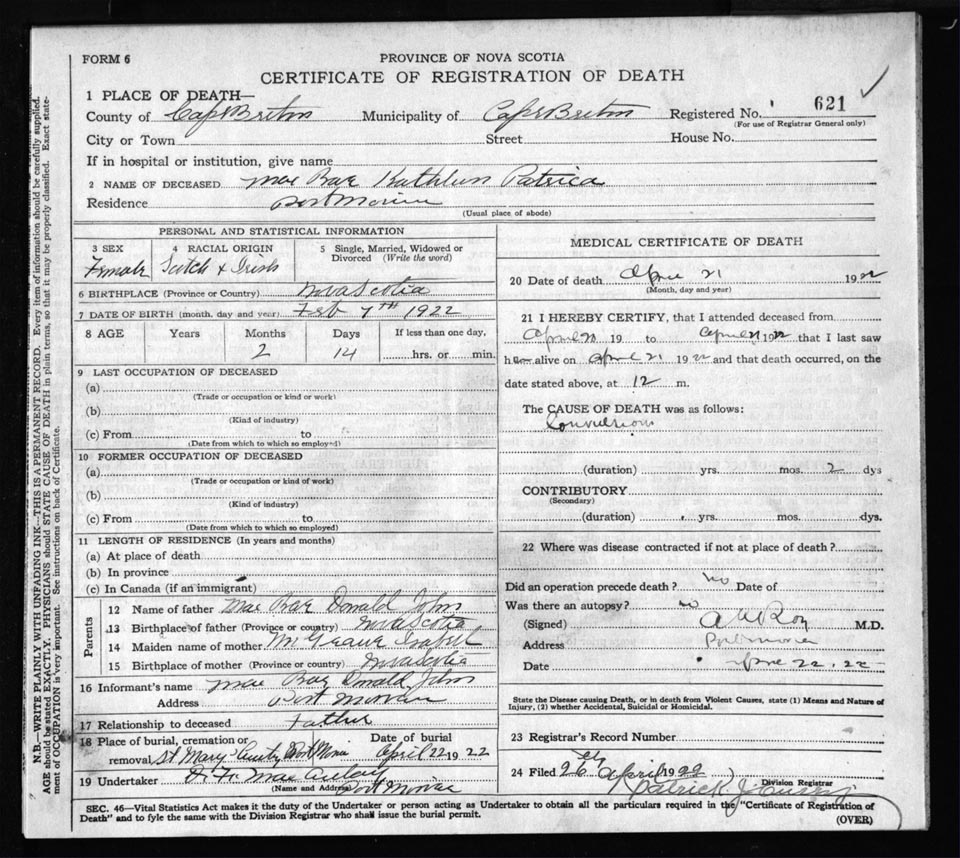 FORM 6
PROVINCE OF NOVA SCOTIA
CERTIFICATE OF REGISTRATION OF DEATH
1 PLACE OF DEATH—
County of Cape Breton Municipality of Cape Breton Registered No. 621
(For use of Registrar General only)
City or Town Street House No.
If in hospital or institution, give name
2 NAME OF DECEASED Mac Rae Kathleen Patrica
Residence Port Morien
(Usual place of abode)
PERSONAL AND STATISTICAL INFORMATION
3 SEX 4 RACIAL ORIGIN 5 Single, Married, Widowed or
Divorced (Write the word)
Female Scotch & Irish
6 BIRTHPLACE (Province or Country) Nova Scotia
7 DATE OF BIRTH (month, day and year) Feb 7th 1922
8 AGE Years Months Days If less than one day,
2 14 hrs. or min.
9 LAST OCCUPATION OF DECEASED
(a)
(Trade or occupation or kind or work)
(b)
(Kind of industry)
(c) From to
(Date from which to which so employed)
10 FORMER OCCUPATION OF DECEASED
(a)
(Trade or occupation or kind of work)
(b)
(Kind of industry)
(c) From to
(Date from which to which so employed)
11 LENGTH OF RESIDENCE (In years and months)
(a) At place of death
(b) In province
(c) In Canada (if an immigrant)
Parents
12 Name of father Mac Rae Donald John
13 Birthplace of father (Province or country) Nova Scotia
14 Maiden name of mother Isabel
15 Birthplace of mother (Province or country) Nova Scotia
16 Informant's name Mac Rae Donald John
Address Port Morien
17 Relationship to deceased Father
18 Place of burial, cremation or Date of burial
removal St Mary Port Morien April 22 1922
19 Undertaker Mac Aulay
(Name and Address) Port Morien
MEDICAL CERTIFICATE OF DEATH
20 Date of death April 21 1922
(Month, day and year)
21 I HEREBY CERTIFY, that I attended deceased from
April 20 19 to April 21 1922 that I last saw
h alive on April 21 1922 and that death occurred, on the
date stated above, at 12 m.
The CAUSE OF DEATH was as follows:
Convulsions
(duration) yrs. mos. 2 dys
CONTRIBUTORY
(Secondary)
(duration) yrs. mos. dys.
22 Where was disease contracted if not at place of death?
Did an operation precede death? No Date of
Was there an autopsy? no
(Signed) Roy M.D.
Address Port Morien
Date April 22. 22
State the Disease causing Death, or in death from Violent Causes, state (1) Means and Nature of
Injury, (2) whether Accidental, Suicidal or Homicidal.
23 Registrar's Record Number
24 Filed 26 April 1922
Division Registrar
Patrick J
SEC. 46—Vital Statistics Act makes it the duty of the Undertaker or person acting as Undertaker to obtain all the particulars required in the "Certificate of Registration of
Death" and to fyle the same with the Division Registrar who shall issue the burial permit.
(OVER)
N.B.—WRITE PLAINLY WITH UNFADING INK—THIS IS A PERMANENT RECORD. Every item of information should be carefully supplied.
AGE should be stated EXACTLY. PHYSICIANS should STATE CAUSE OF DEATH in plain terms, so that it may be properly classified. Exact state-
ment of OCCUPATION is very important. See instructions on back of Certificate.